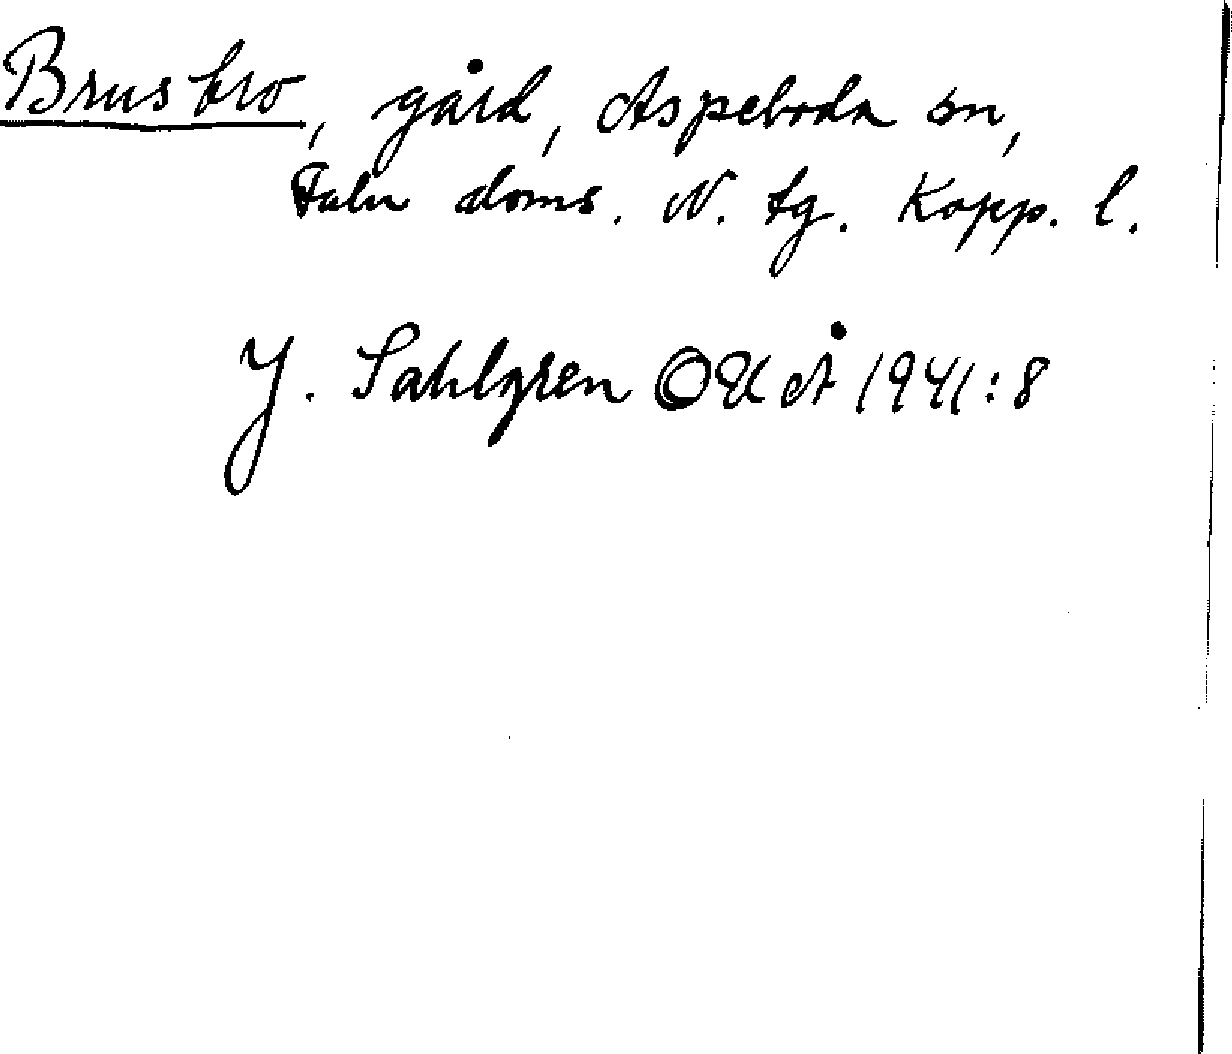 Brusbro, gård, Aspeboda sn,
Falu doms. N. tg. Kopp. l.
J. Sahlgren OUÅ 1941:8